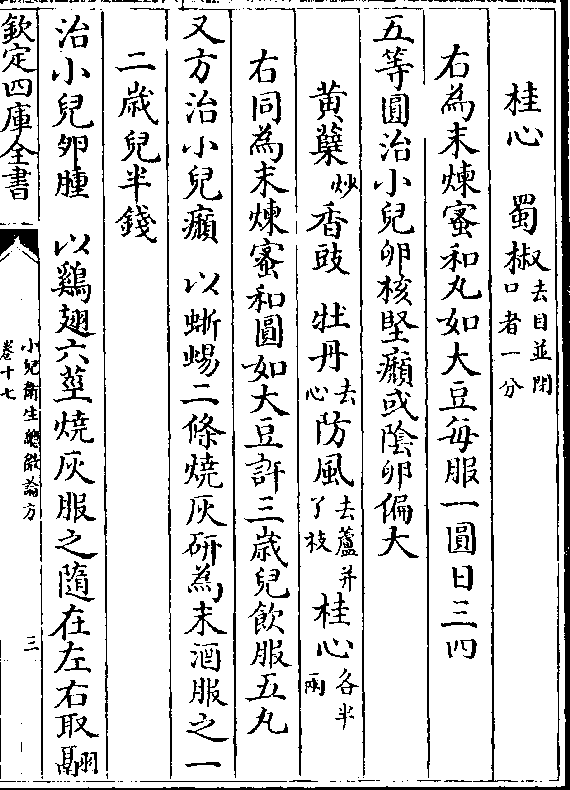 桂心　蜀椒去目並閉口者一分
右為末煉蜜和丸如大豆每服一圓日三四
五等圓治小兒卵核堅㿗或陰卵偏大
黄蘗炒香豉　牡丹去心防風去蘆并了枝桂心各半兩
右同為末煉蜜和圓如大豆許三歲兒飲服五丸
又方治小兒㿗　以蜥蜴二條燒灰研為末酒服之一
二歲兒半錢
治小兒卵腫　以鷄翅六莖燒灰服之隨在左右取翮
欽定四庫全書
小兒衛生總微論方
卷十七
三